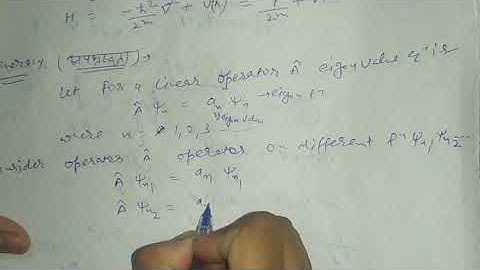 H = -ħ²/2m ∇² + V(r) =
(अपभ्रष्टता) :-
Let for a linear operator  eigen value eqⁿ is
 ψₙ = aₙ ψₙ → eigen fⁿ
eigen value
where n = 1, 2, 3
operator  operates on different fⁿ ψₙ₁ ψₙ₂
 ψₙ₁ = aₙ ψₙ₁
 ψₙ₂ = a